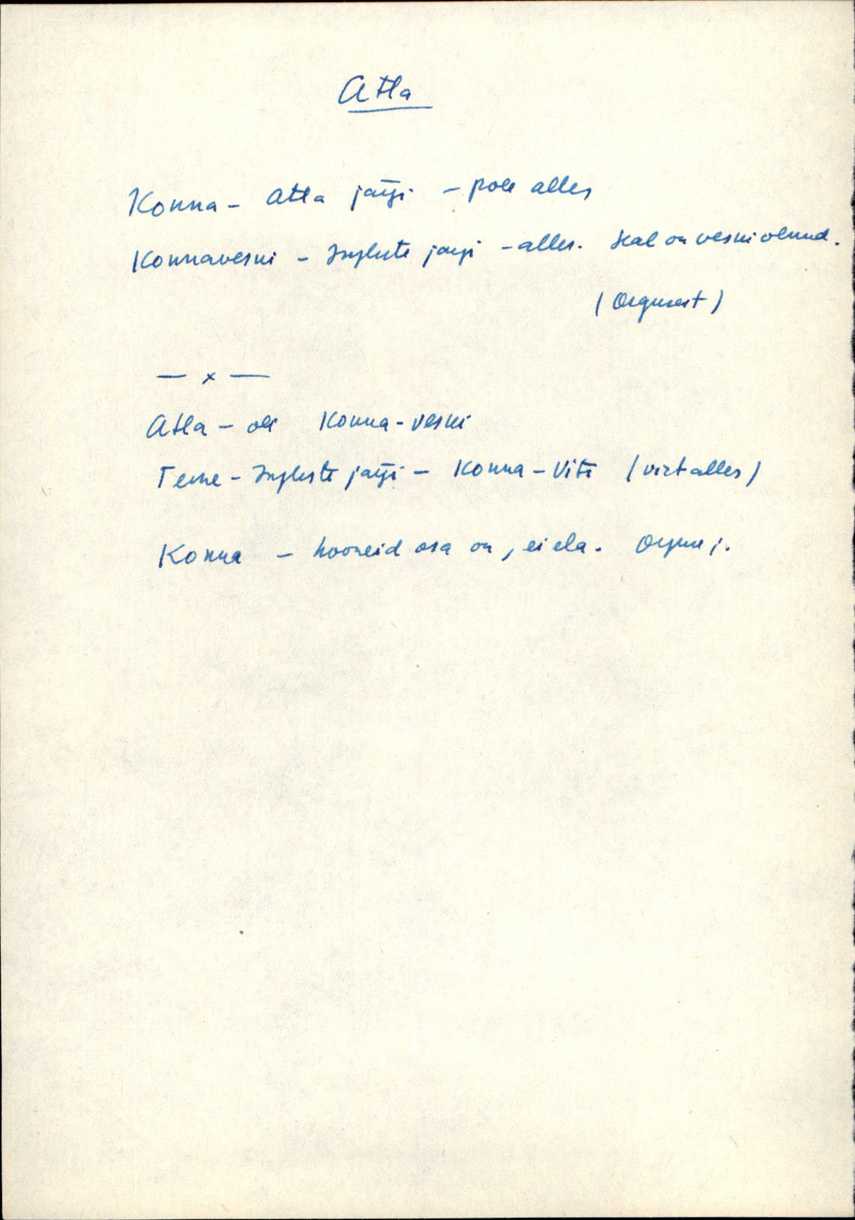 Atla
Konna - Atla järgi - pole alles
Konnaveski - Ingliste järgi - alles. Seal on veski olnud.
(Orgusest)
— x —
Atla - oli Konna-veski
Teine - Ingliste järgi - Konna - Viti (virt alles)
Konna - hooneid osa on, ei ela.